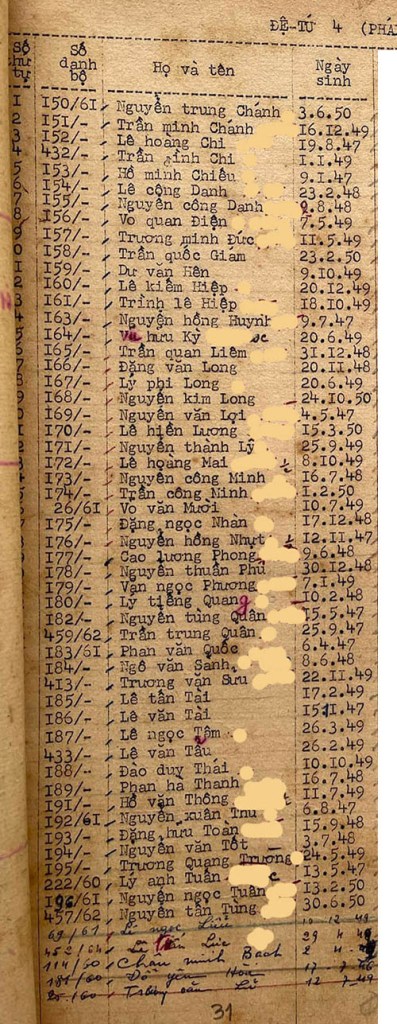 ĐỆ-TỨ 4 (PHÁ
Số thứ tự Số danh bộ Họ và tên Ngày sinh
1 I50/6I Nguyễn trung Chánh 3.6.50
2 I5I/- Trần minh Chánh I6.I2.49
3 I52/- Lê hoàng Chi I9.8.47
4 432/- Trần đình Chi I.I.49
5 I53/- Hồ minh Chiêu 9.I.47
6 I54/- Lê công Danh 23.2.48
7 I55/- Nguyễn công Danh 9.8.48
8 I56/- Võ quan Điện 7.5.49
9 I57/- Trương minh Đức II.5.49
0 I58/- Trần quốc Giám 23.2.50
1 I59/- Dư văn Hên 9.I0.49
2 I60/- Lê kiếm Hiệp 20.I2.49
3 I6I/- Trình lê Hiệp I8.I0.49
4 I63/- Nguyễn hồng Huỳnh 9.7.47
I64/- Vũ hưu Kỳ 20.6.49
I65/- Trần quan Liêm 3I.I2.48
I66/- Đặng văn Long 20.II.48
I67/- Lý phi Long 20.6.49
I68/- Nguyễn kim Long 24.I0.50
I69/- Nguyễn văn Lợi 4.5.47
I70/- Lê hiền Lương I5.3.50
I7I/- Nguyễn thành Lý 25.9.49
I72/- Lê hoàng Mai 8.I0.49
I73/- Nguyễn công Minh I6.7.48
I74/- Trần công Minh I.2.50
26/6I Võ văn Mười I0.7.49
I75/- Đặng ngọc Nhàn I7.I2.48
I76/- Nguyễn hồng Nhựt I2.II.47
I77/- Cao lương Phong 9.6.48
I78/- Nguyễn thuần Phú 30.I2.48
I79/- Văn ngọc Phương 7.I.49
I80/- Lý tiếng Quang I0.2.48
I82/- Nguyễn tùng Quân I5.5.47
459/62 Trần trung Quân 25.9.47
I83/6I Phan văn Quốc 6.4.47
I84/- Ngô văn Sanh 8.6.48
4I3/- Trương văn Sửu 22.II.49
I85/- Lê tấn Tài I7.2.49
I86/- Lê văn Tài I5.II.47
I87/- Lê ngọc Tâm 26.3.49
433/- Lê văn Tấu 26.2.49
I88/- Đào duy Thái I0.I0.49
I89/- Phan hà Thanh I6.7.48
I9I/- Hồ văn Thông II.7.49
I92/6I Nguyễn xuân Thu 6.8.47
I93/- Đặng hưu Toàn I5.9.48
I94/- Nguyễn văn Tốt 3.7.48
I95/- Trương Quang Trường 24.5.49
222/60 Lý anh Tuấn I3.5.47
I96/6I Nguyễn ngọc Tuấn I3.2.50
457/62 Nguyễn tấn Tùng 30.6.50
69/61 Lê ngọc
452/62 Lê
114/60 Châu minh Bạch
181/60 Đỗ
/60 12 7 49
31